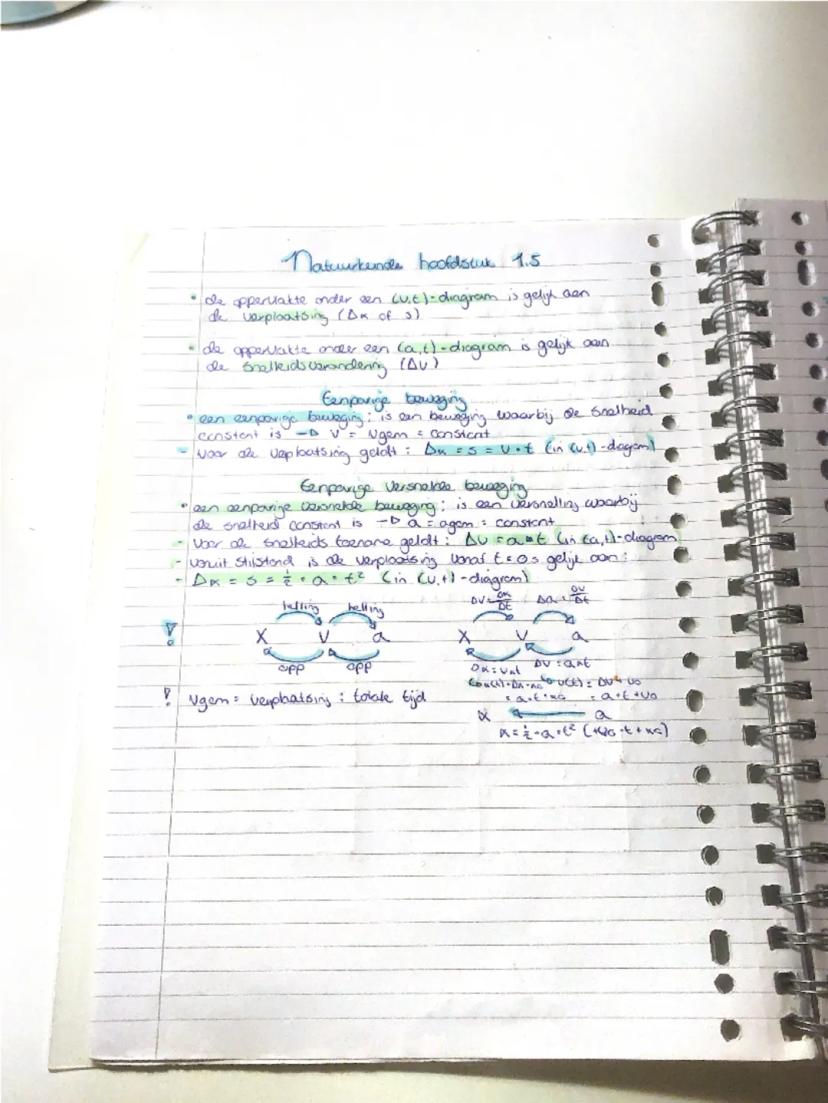 Natuurkunde hoofdstuk 1.5
• de oppervlakte onder een (v,t)-diagram is gelijk aan
de verplaatsing (Δx of s)
• de oppervlakte onder een (a,t)-diagram is gelijk aan
de snelheidsverandering (Δv)
Eenparige beweging
• een eenparige beweging: is een beweging waarbij de snelheid
constant is -▷ v = vgem = constant
- voor de verplaatsing geldt: Δx = s = v • t (in (v,t)-diagram)
Eenparige versnelde beweging
• een eenparige versnelde beweging: is een versnelling waarbij
de snelheid constant is -▷ a = agem = constant
- voor de snelheids toename geldt: Δv = a • t (in (a,t)-diagram)
- vanuit stilstand is de verplaatsing vanaf t=0s gelijk aan:
- Δx = s = ½ • a • t² (in (v,t)-diagram)
helling helling Δv = Δx/Δt Δa = Δv/Δt
! x v a x v a
opp opp Δx = v•t Δv = a•t
! vgem = verplaatsing : totale tijd
= a•t + v0
x a
x = ½ • a • t² (+v0 • t + x0)